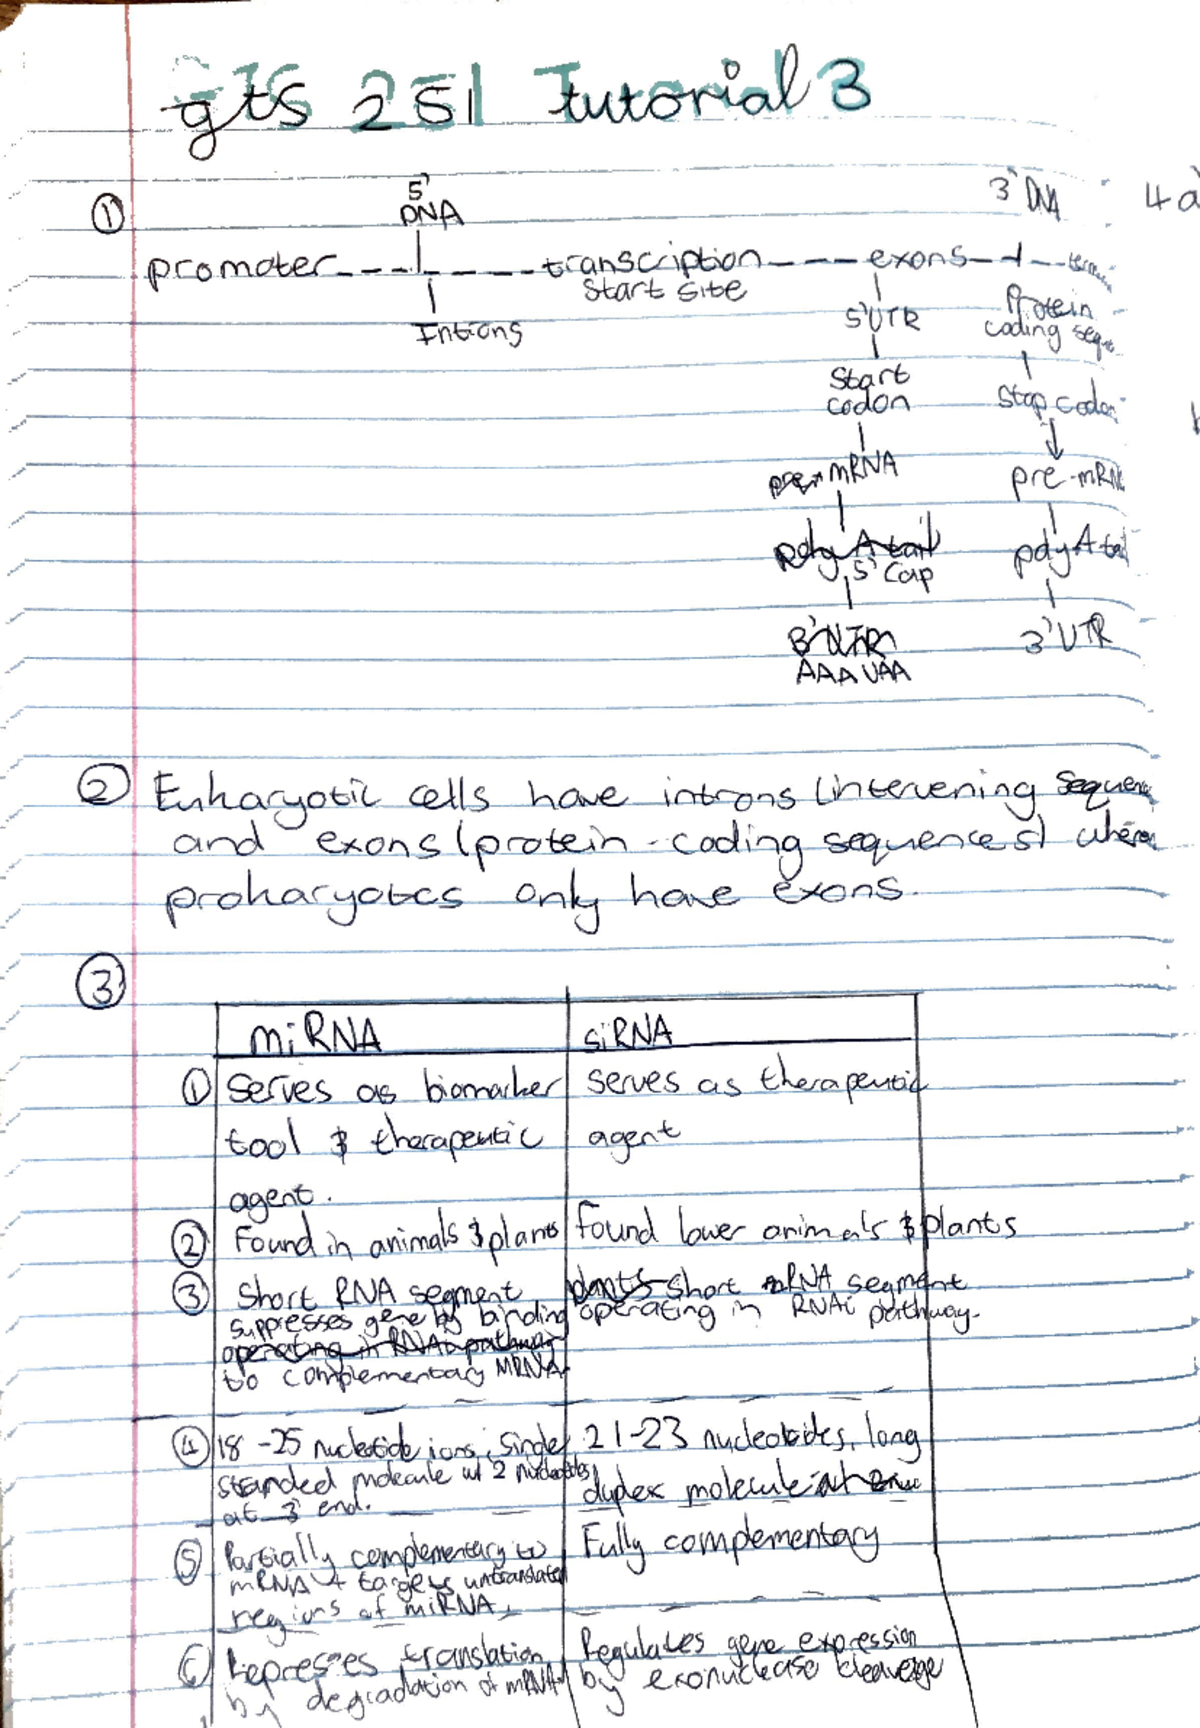 gts 251 Tutorial 3
①
5'
DNA
3' DNA
4a
promoter --- transcription --- exons
Start site
Introns
5'UTR
Protein
coding
Start
codon
Stop codon
pre-mRNA
pre-mRNA
poly A tail
5' Cap
poly A tail
3'UTR
AAAUAA
3'UTR
② Eukaryotic cells have introns (intervening sequen
and exons (protein-coding sequences) where
prokaryotes only have exons.
③
miRNA
siRNA
① Serves as biomarker
tool & therapeutic
agent.
serves as therapeutic
agent
② Found in animals & plants
Found lower animals & plants
③ Short RNA segment
suppresses gene by binding
operating in RNAi pathway
to complementary mRNA
plants short RNA segment
operating in RNAi pathway.
④ 18-25 nucleotide ions, single
stranded molecule w/ 2 nucleotides
at 3' end.
21-23 nucleotides, long
duplex molecule at
⑤ Partially complementary to
mRNA + targets untranslated
regions of miRNA
Fully complementary
⑥ Represses translation
by degradation of mRNA
Regulates gene expression
by exonuclease cleavage